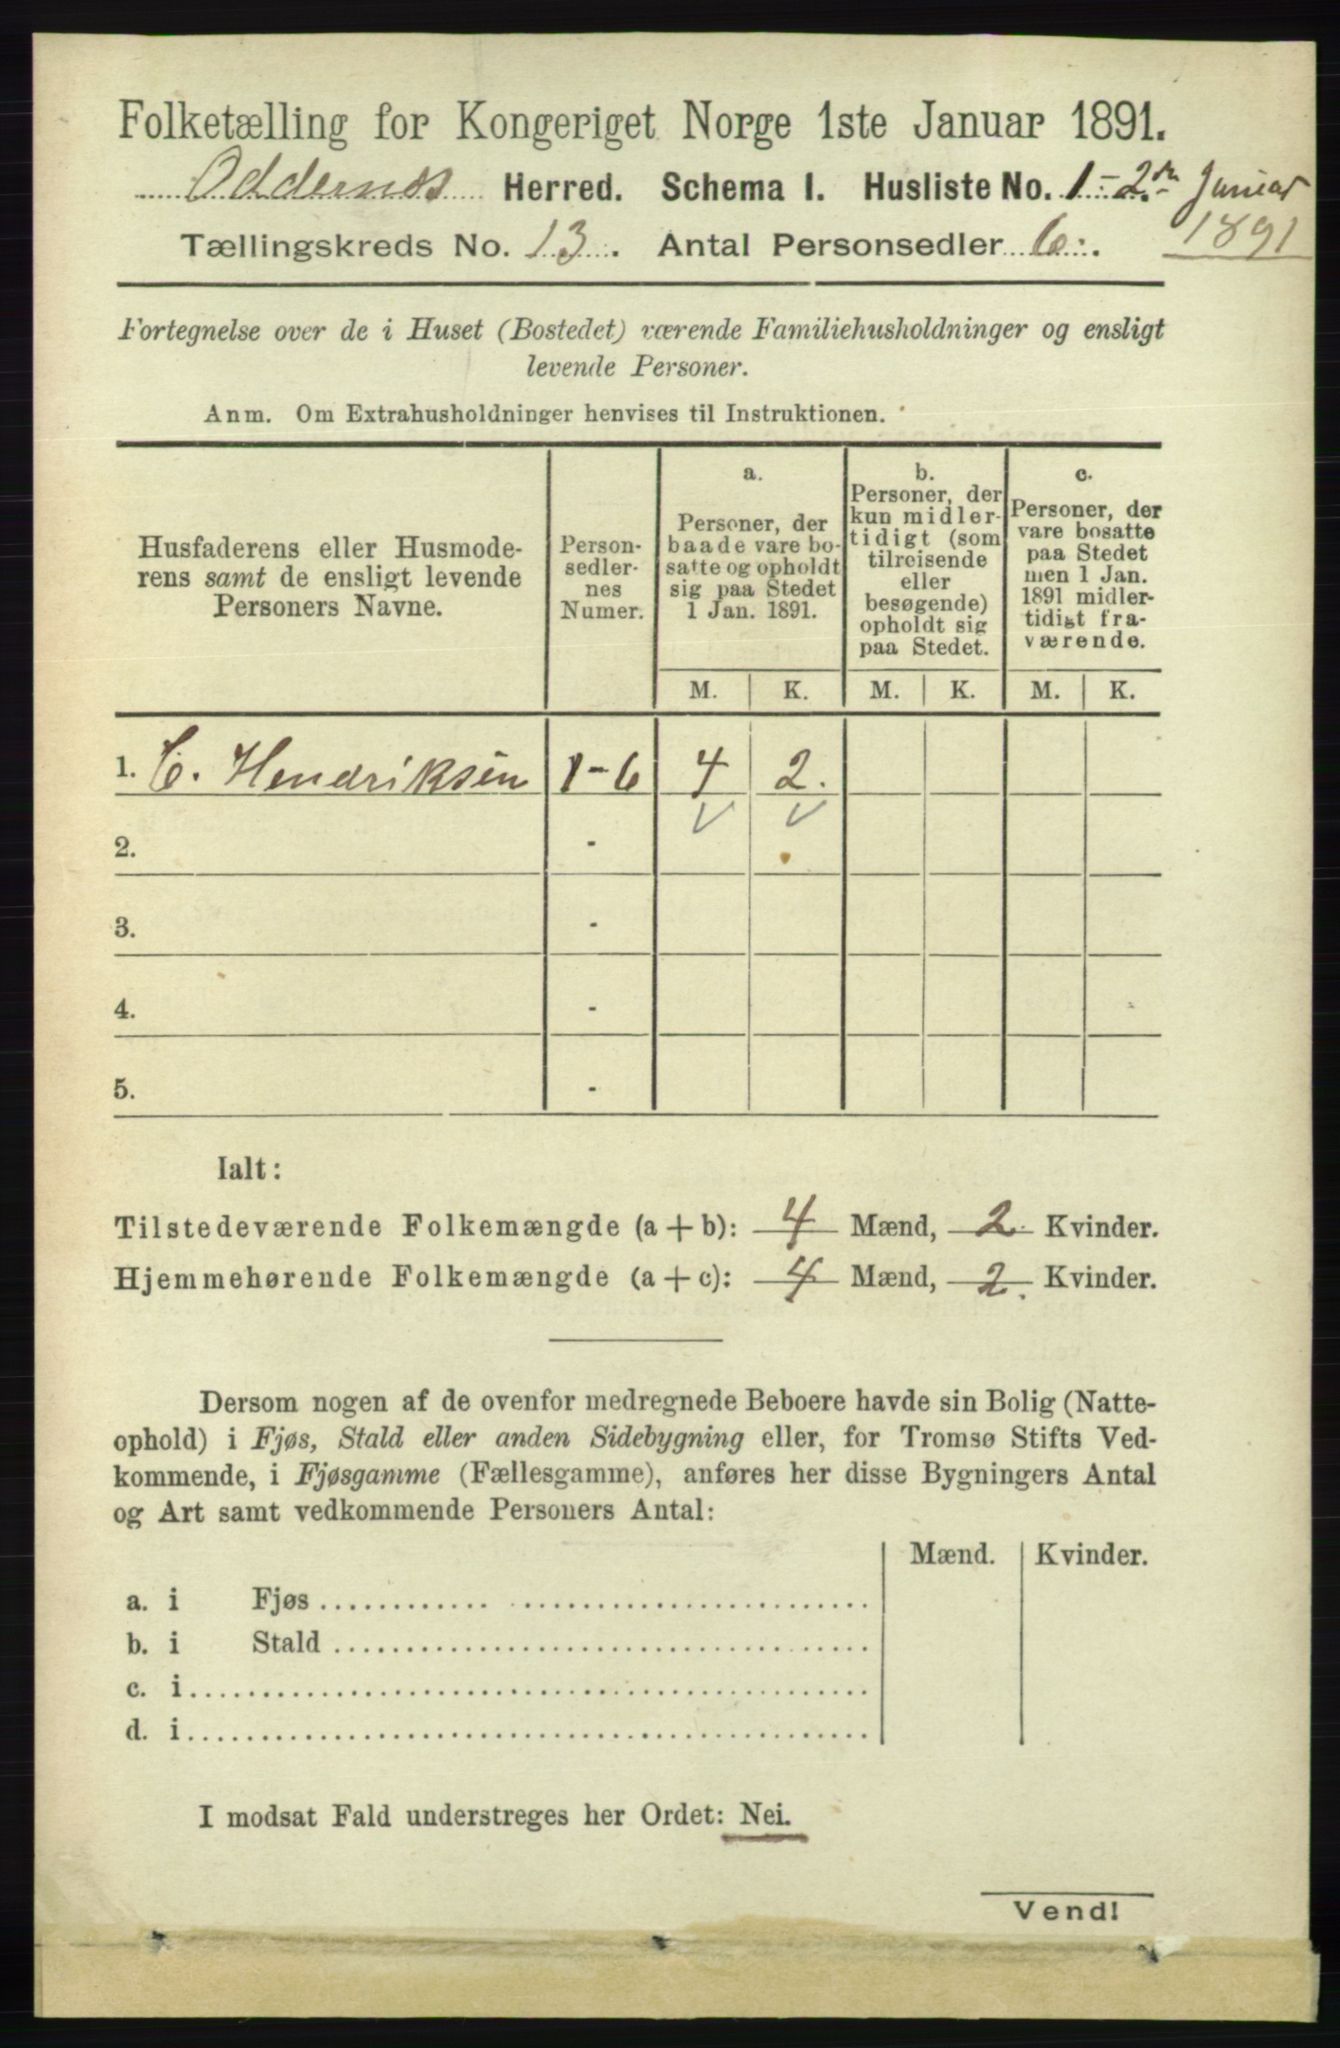 Folketælling for Kongeriget Norge 1ste Januar 1891.
Oddernes Herred. Schema I. Husliste No. 1 - 2den Januar
1891
Tællingskreds No. 13. Antal Personsedler 6.
Fortegnelse over de i Huset (Bostedet) værende Familiehusholdninger og ensligt
levende Personer.
Anm. Om Extrahusholdninger henvises til Instruktionen.
Husfaderens eller Husmode-
rens samt de ensligt levende
Personers Navne.
Person-
sedler-
nes
Numer.
a.
Personer, der
baade vare bo-
satte og opholdt
sig paa Stedet
1 Jan. 1891.
b.
Personer, der
kun midler-
tidigt (som
tilreisende
eller
besøgende)
opholdt sig
paa Stedet.
c.
Personer, der
vare bosatte
paa Stedet
men 1 Jan.
1891 midler-
tidigt fra-
værende.
M. K. M. K. M. K.
1. C. Hendriksen 1-6 4 2.
2. -
3. -
4. -
5. -
Ialt:
Tilstedeværende Folkemængde (a+b): 4 Mænd, 2 Kvinder.
Hjemmehørende Folkemængde (a+c): 4 Mænd, 2. Kvinder.
Dersom nogen af de ovenfor medregnede Beboere havde sin Bolig (Natte-
ophold) i Fjøs, Stald eller anden Sidebygning eller, for Tromsø Stifts Ved-
kommende, i Fjøsgamme (Fællesgamme), anføres her disse Bygningers Antal
og Art samt vedkommende Personers Antal:
Mænd. Kvinder.
a. i Fjøs
b. i Stald
c. i
d. i
I modsat Fald understreges her Ordet: Nei.
Vend!